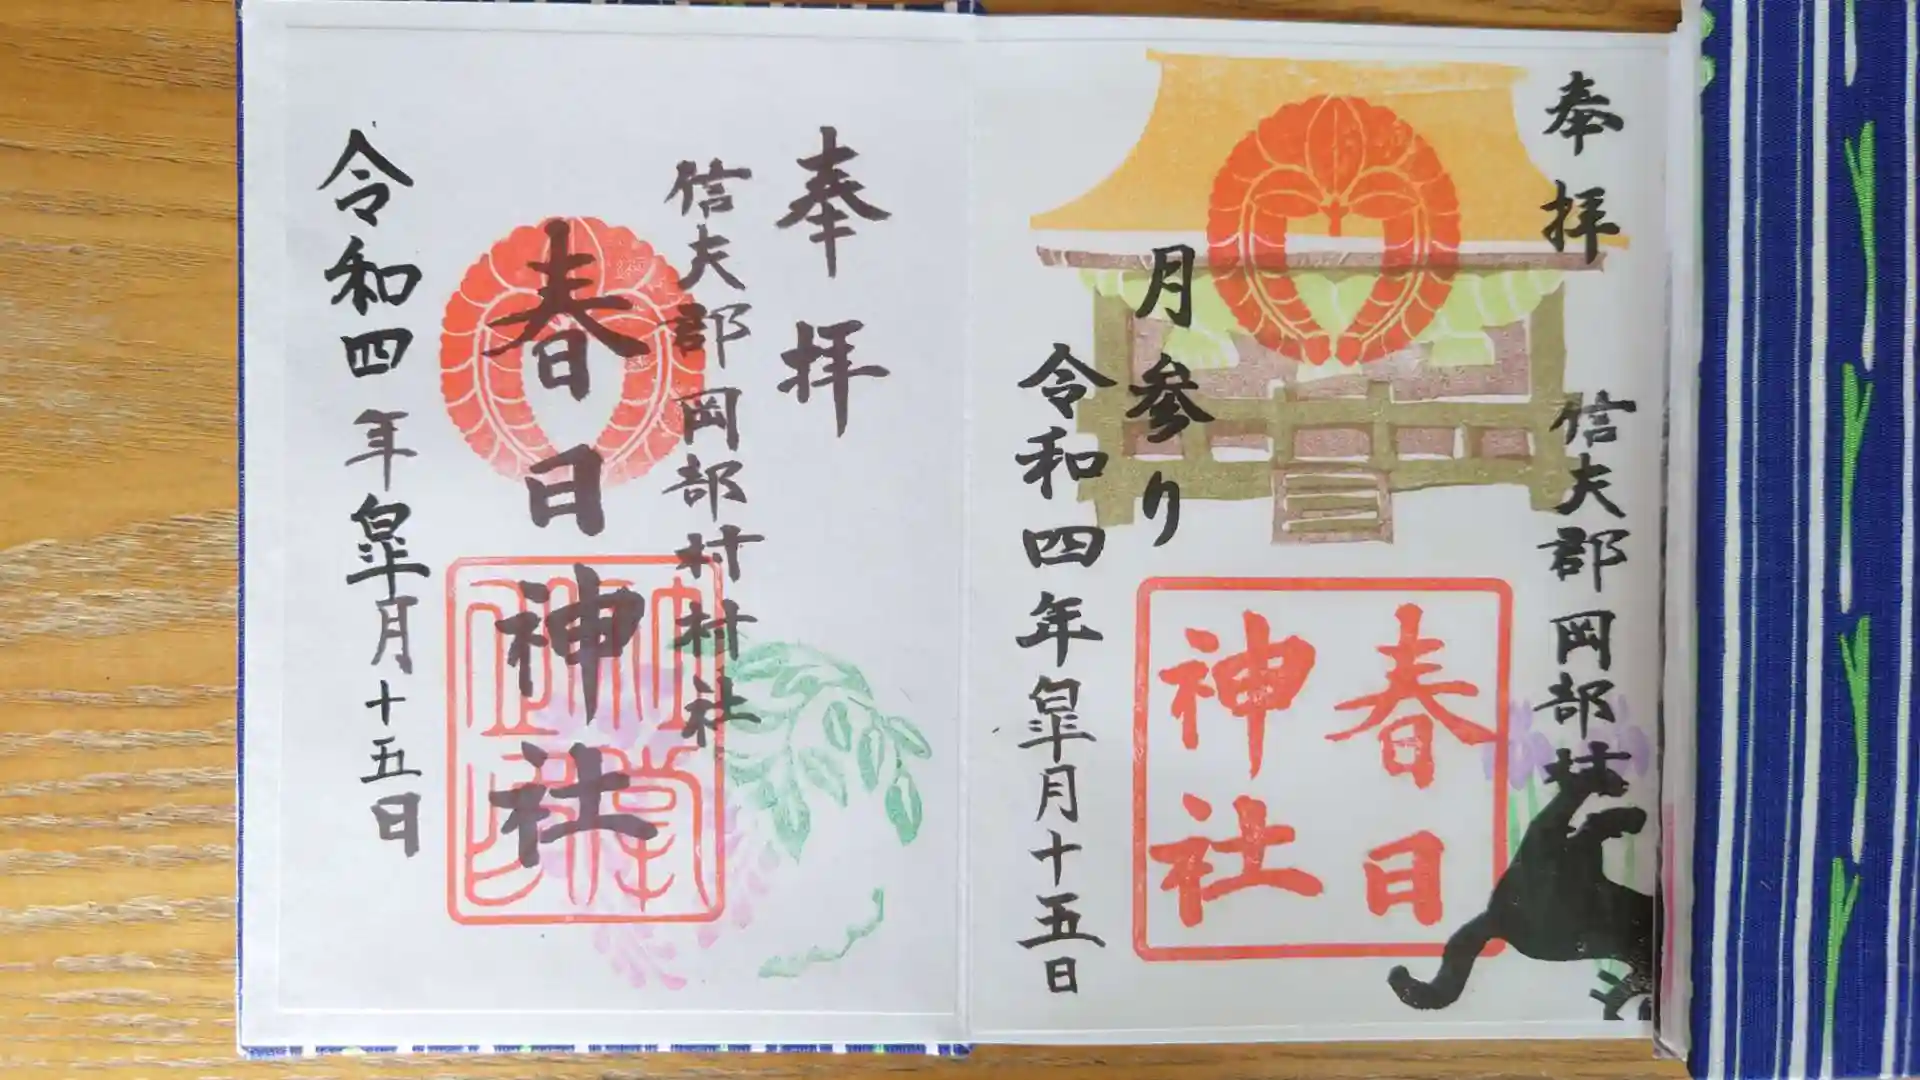 奉拝
信夫郡岡部村
月参り
令和四年皐月十五日
春日
神社
奉拝
信夫郡岡部村村社
春日神社
令和四年皐月十五日